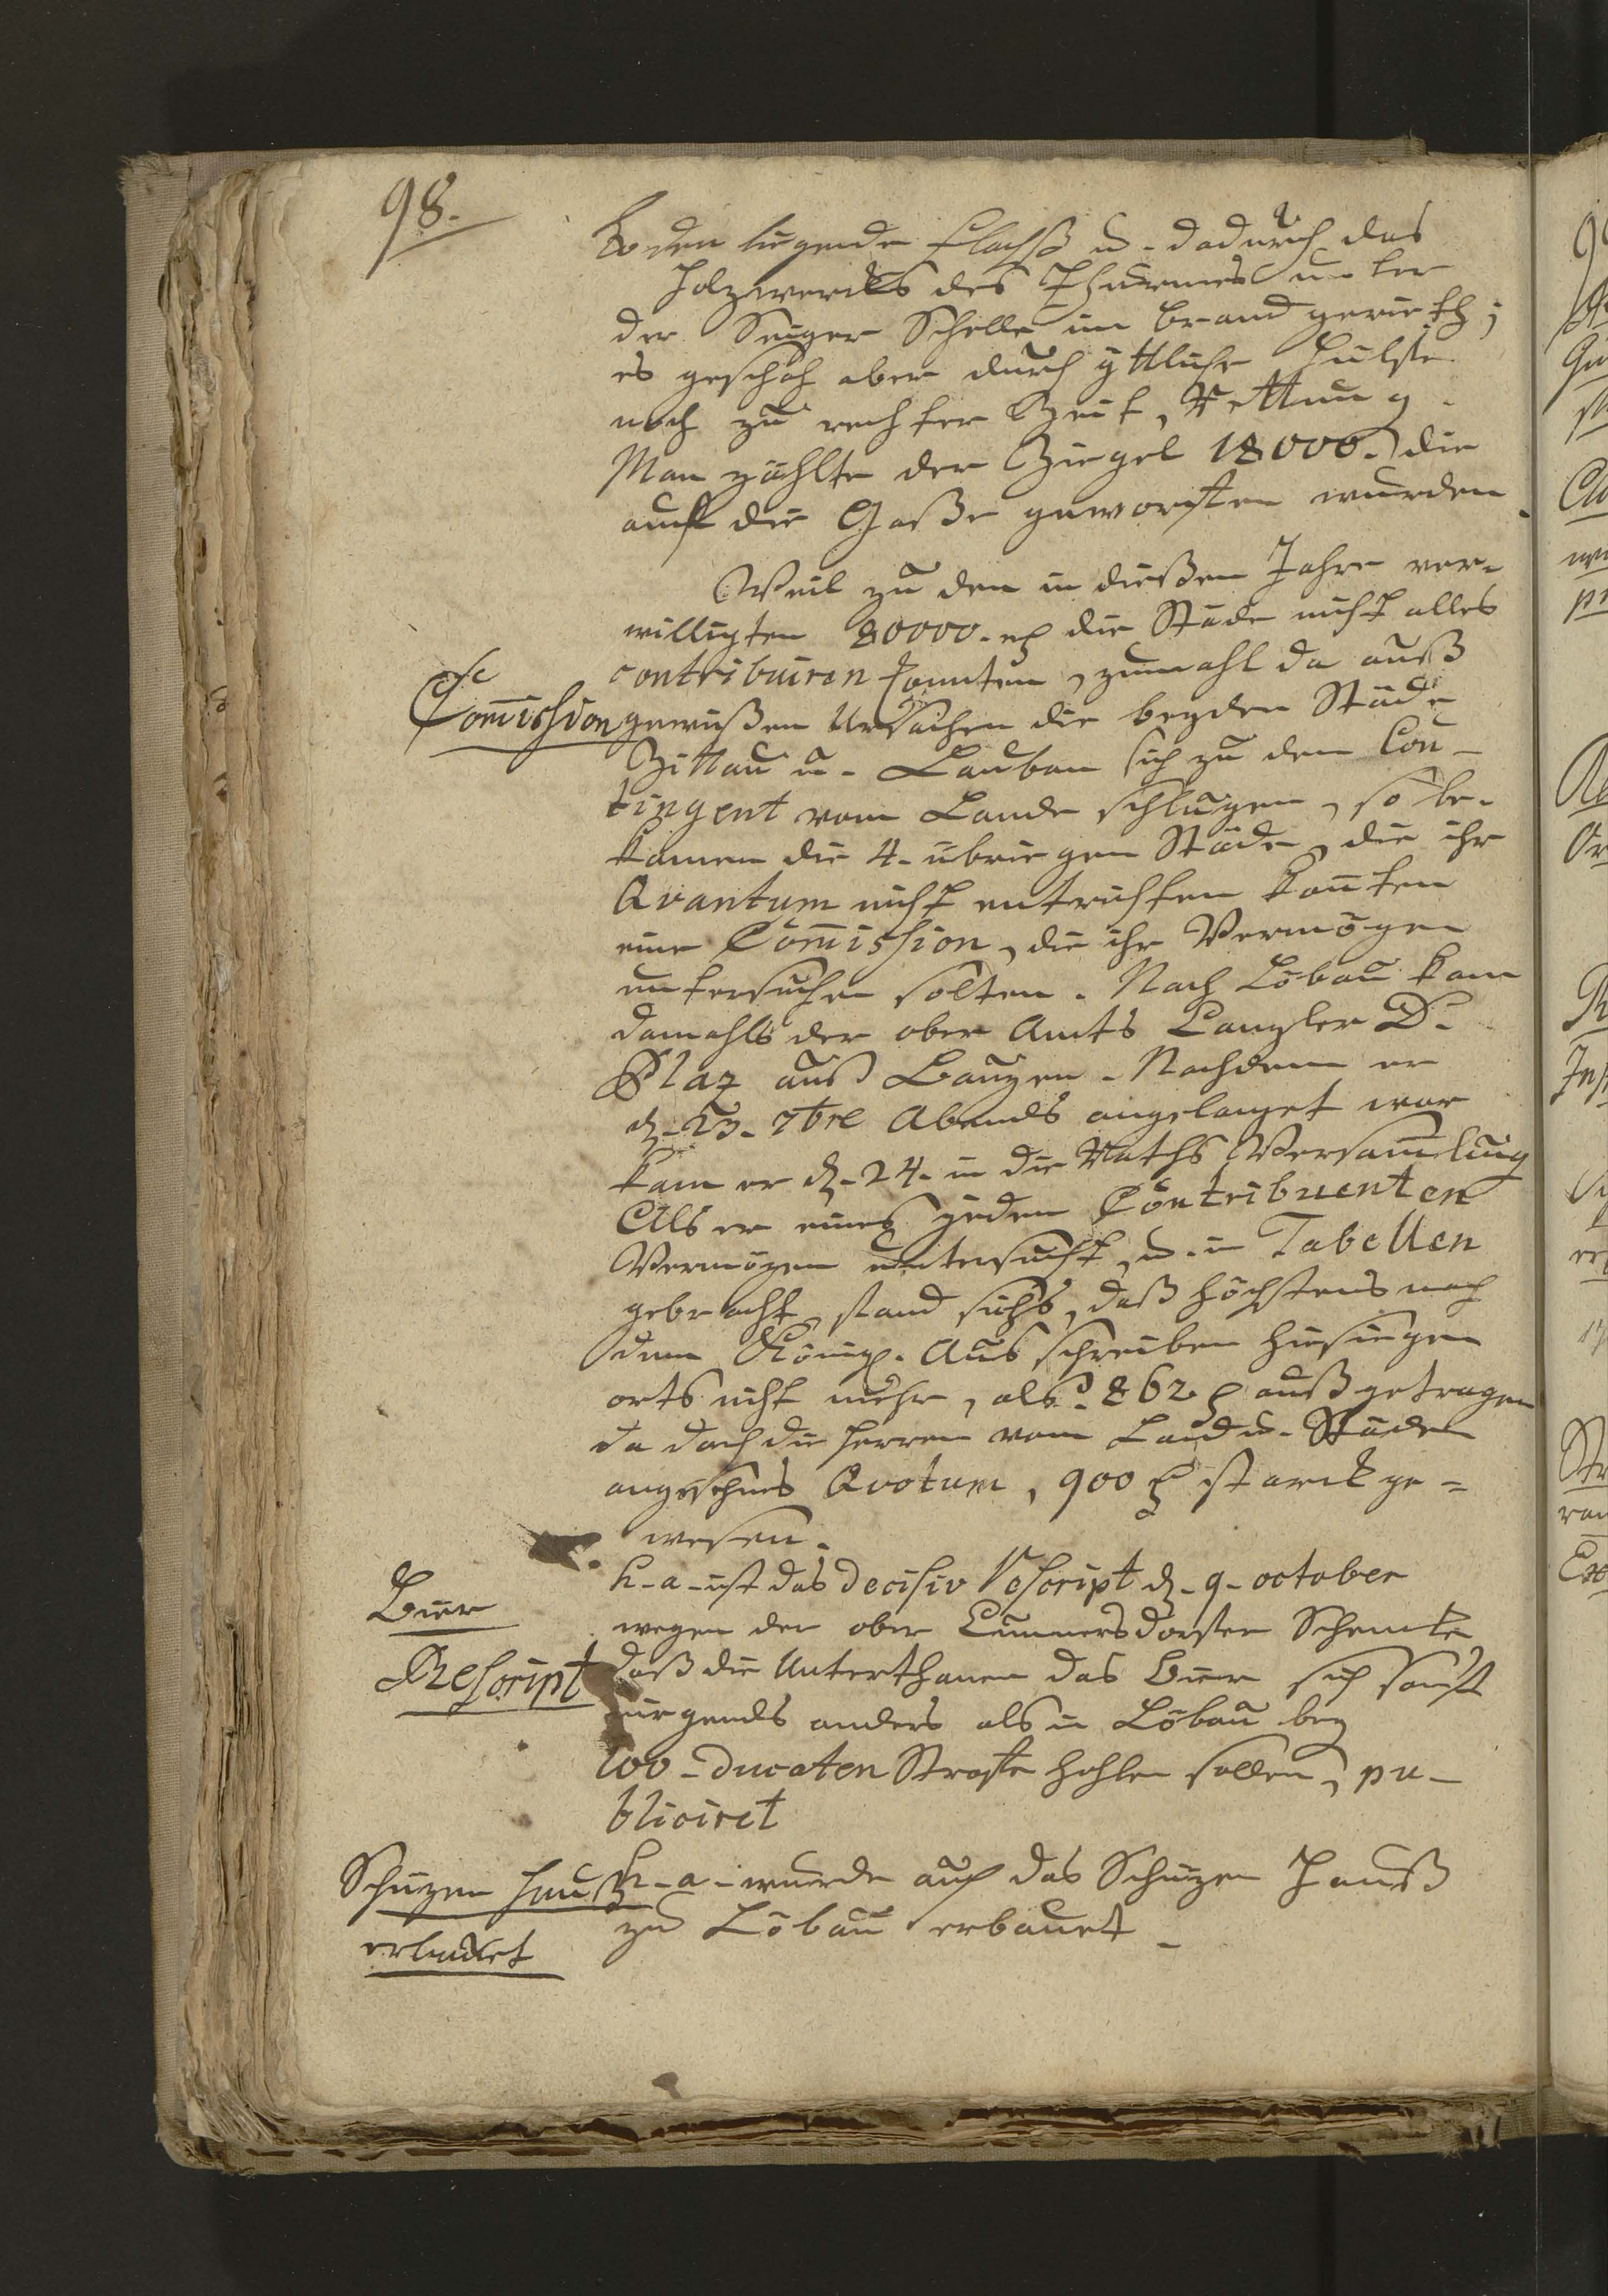 98.
Boden liegende Flachß u. dadurch das
Holzwercks des Thurmes unter
der Seiger Schelle in brand gerieth;
es geschah aber durch göttliche Hülffe
noch zu rechter Zeit, Rettung.
Man zählte der Ziegel 18000. die
auff die Gaße geworffen wurden.
Weil zu den in dießen Jahre ver-
willigten 80000. die Städe nicht alles
contribuiren konnten, zumahl da auß
Com̄ission gewißen Ursachen die beyden Städe
Zittau u. Lauban sich zu dem Con-
tingent vom Lande schlugen, so be-
kamen die 4. übriegen Städe, die ihr
Qvantum nicht entrichten kon̄ten
eine Com̄ission, die ihr Vermögen
untersuchen solten. Nach Löbau kam
damahls der ober Amts Canzler D.
Plaz auß Bauzen. Nachdem er
d. 23. 7bre Abends angelanget war
kam er d. 24. in die Raths Versam̄lung
Als er eines jeden Contribuenten
Vermögen untersucht, u. in Tabellen
gebracht, fand sichs, daß höchstens nach
dem Königl. Ausschreiben hiesiegen
orts nicht mehr, als 862 außgetragen
da doch die herren vom Land u. Städen
angesehnes Qvotum, 900 starck ge-
wesen.
h. a. ist das Decisiv Rescript d. 9. october
Bier
wegen der ober Cunnersdorffer Schencke
Rescript
daß die Unterthanen das Bier sich sonst
nirgends anders als in Löbau bey
100. Ducaten Straffe hohlen sollen, pu-
bliciret
Schüzen Hauß h. a. wurde auch das Schüzen Hauß
erbauet
zu Löbau erbauet.